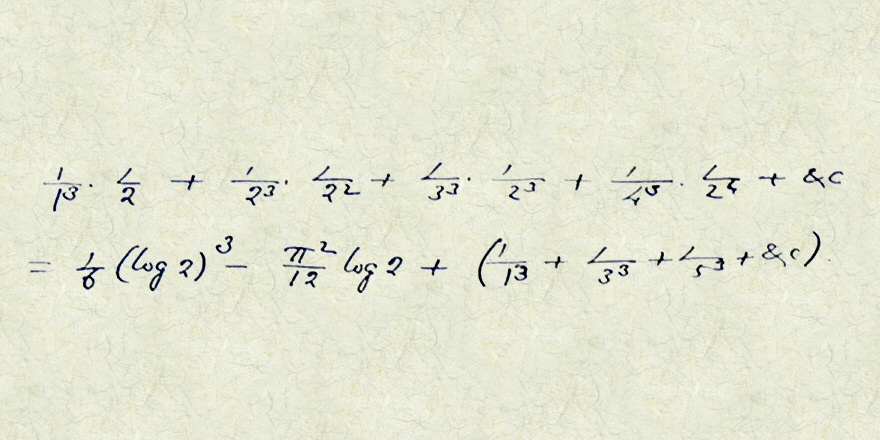 1/1³ · 1/2 + 1/2³ · 1/2² + 1/3³ · 1/2³ + 1/4³ · 1/2⁴ + &c
= 1/6 (log 2)³ − π²/12 log 2 + (1/1³ + 1/3³ + 1/5³ + &c).